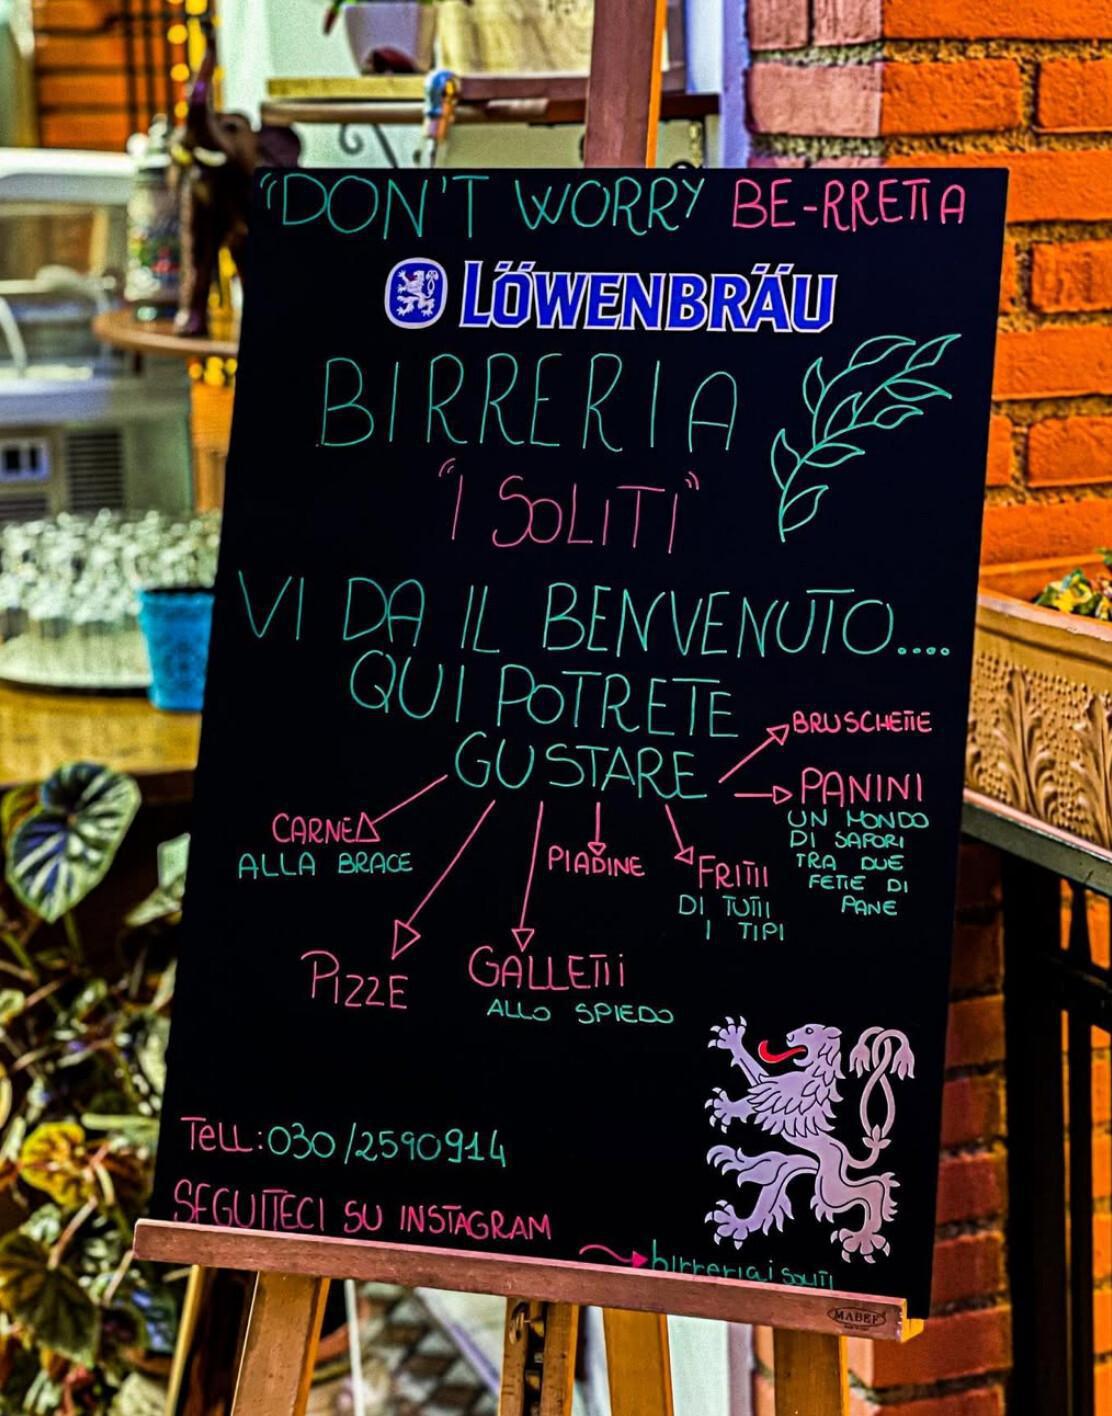 "DON'T WORRY BE-RRETTA
LÖWENBRÄU
BIRRERIA
"I SOLITI"
VI DA IL BENVENUTO....
QUI POTRETE
GUSTARE
BRUSCHETTE
PANINI
UN MONDO
DI SAPORI
TRA DUE
FETTE DI
PANE
CARNE
ALLA BRACE
PIADINE
FRITTI
DI TUTTI
I TIPI
PIZZE
GALLETTI
ALLO SPIEDO
TELL:030/2590914
SEGUITECI SU INSTAGRAM
birreriaisoliti
MABEF